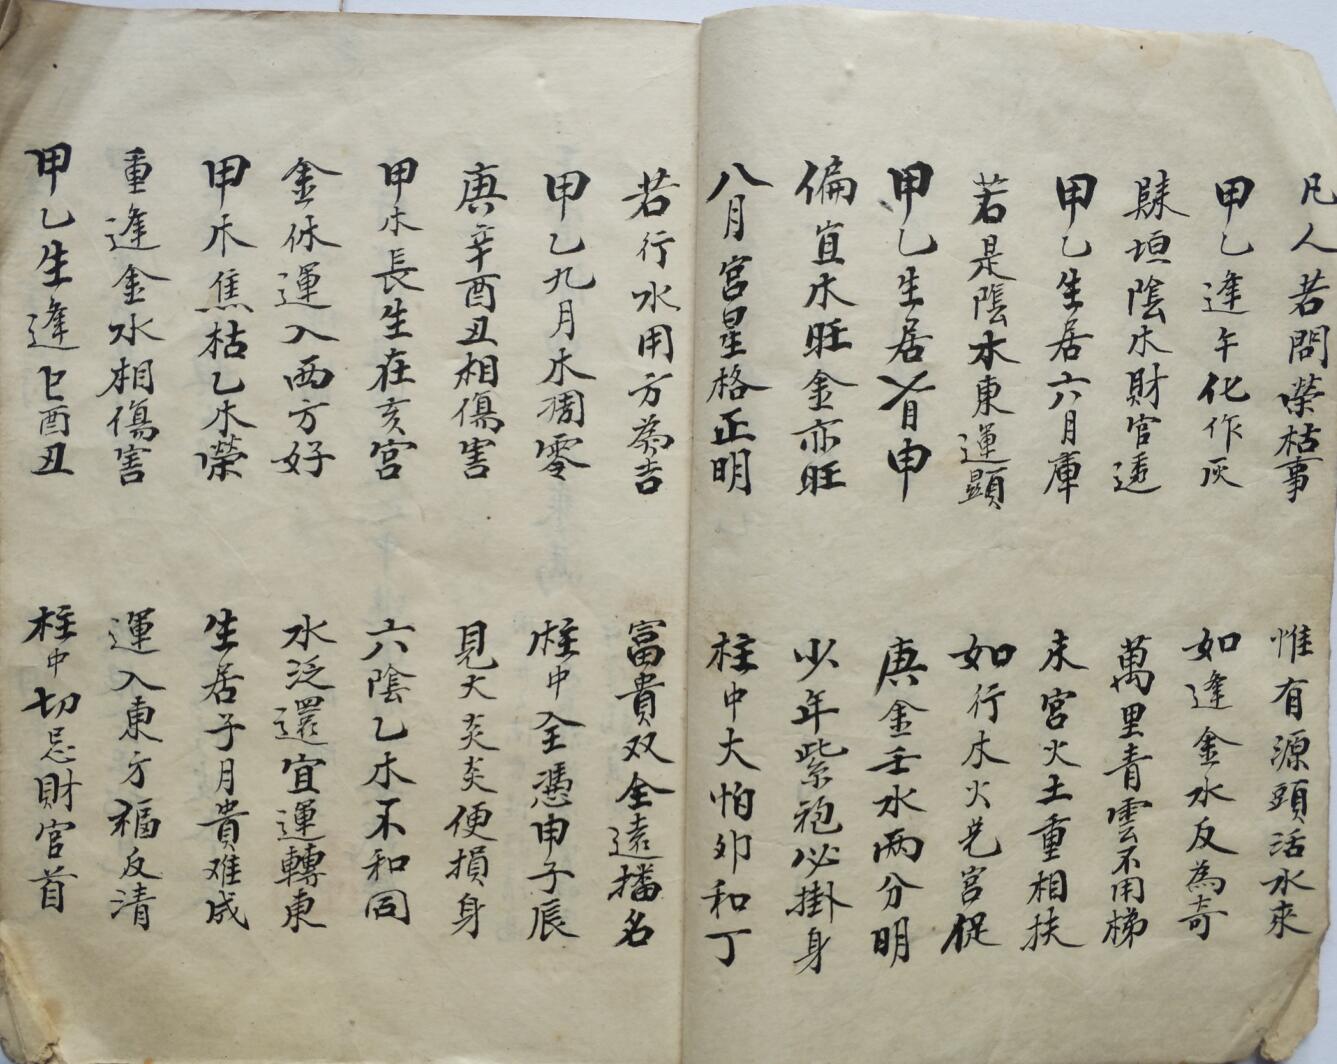 凡人若問榮枯事
惟有源頭活水來
甲乙逢午化作灰
如逢金水反為奇
垣陰木財官透
萬里青雲不用梯
甲乙生居六月庫
未宮火土重相扶
若是陰木東運顯
如行木火宮促
甲乙生居月申
庚金壬水兩分明
偏宜木旺金亦旺
少年紫袍必掛身
八月宮星格正明
柱中大怕卯和丁
若行水用方為吉
富貴双全遠播名
甲乙九月木凋零
柱中全憑申子辰
庚辛酉丑相傷害
見大炎炎便損身
甲木長生在亥宮
六陰乙木不和同
金休運入西方好
水泛還宜運轉東
甲木焦枯乙木榮
生居子月貴难成
重逢金水相傷害
運入東方福反清
甲乙生逢巳酉丑
柱中切忌財官首